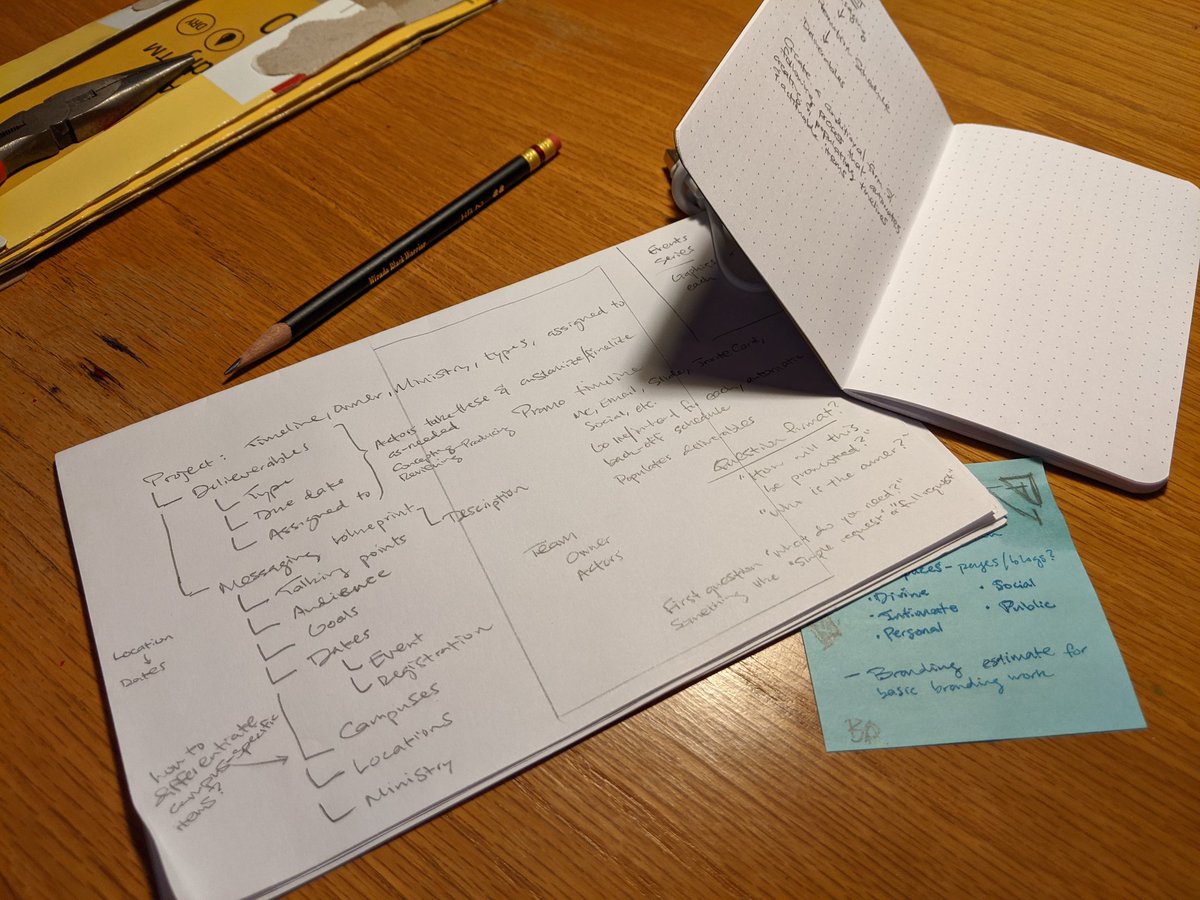 DRY
TM
Mirado Black Warrior
HB 2
Deliverables
Create a conditional form &
following process that automates
assets & populating timelines
& actionable items
Events
series
Graphics
each
Project: Timeline, Owner, Ministry, types, assigned to
Deliverables
Type
Due date
Assigned to
Actors take these & customize/finalize
as-needed
Concepting-Producing
Messaging blueprint
Description
Talking points
Audience
Goals
Dates
Event
Registration
Campuses
Locations
Ministry
Location
Dates
how to
differentiate
campus-specific
items?
Promo timeline
MC, Email, Slide, Invite Card,
Social, etc.
for each, automatic
back-off schedule
Populates deliverables
Team
Owner
Actors
Question format?
"How will this
be promoted?"
"Who is the owner?"
First question "What do you need?"
Something like "Simple request" or "full request"
Spaces - pages/blogs?
• Divine
• Intimate
• Personal
• Social
• Public
— Branding estimate for
basic branding work